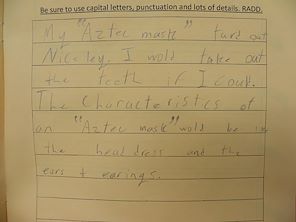 Be sure to use capital letters, punctuation and lots of details. RADD.
My "Aztec mask" turd out
Niceley. I wold take out
the teeth if I coul.
The Characteristics of
an "Aztec mask" wold be in
the headdress and the
ears + earings.